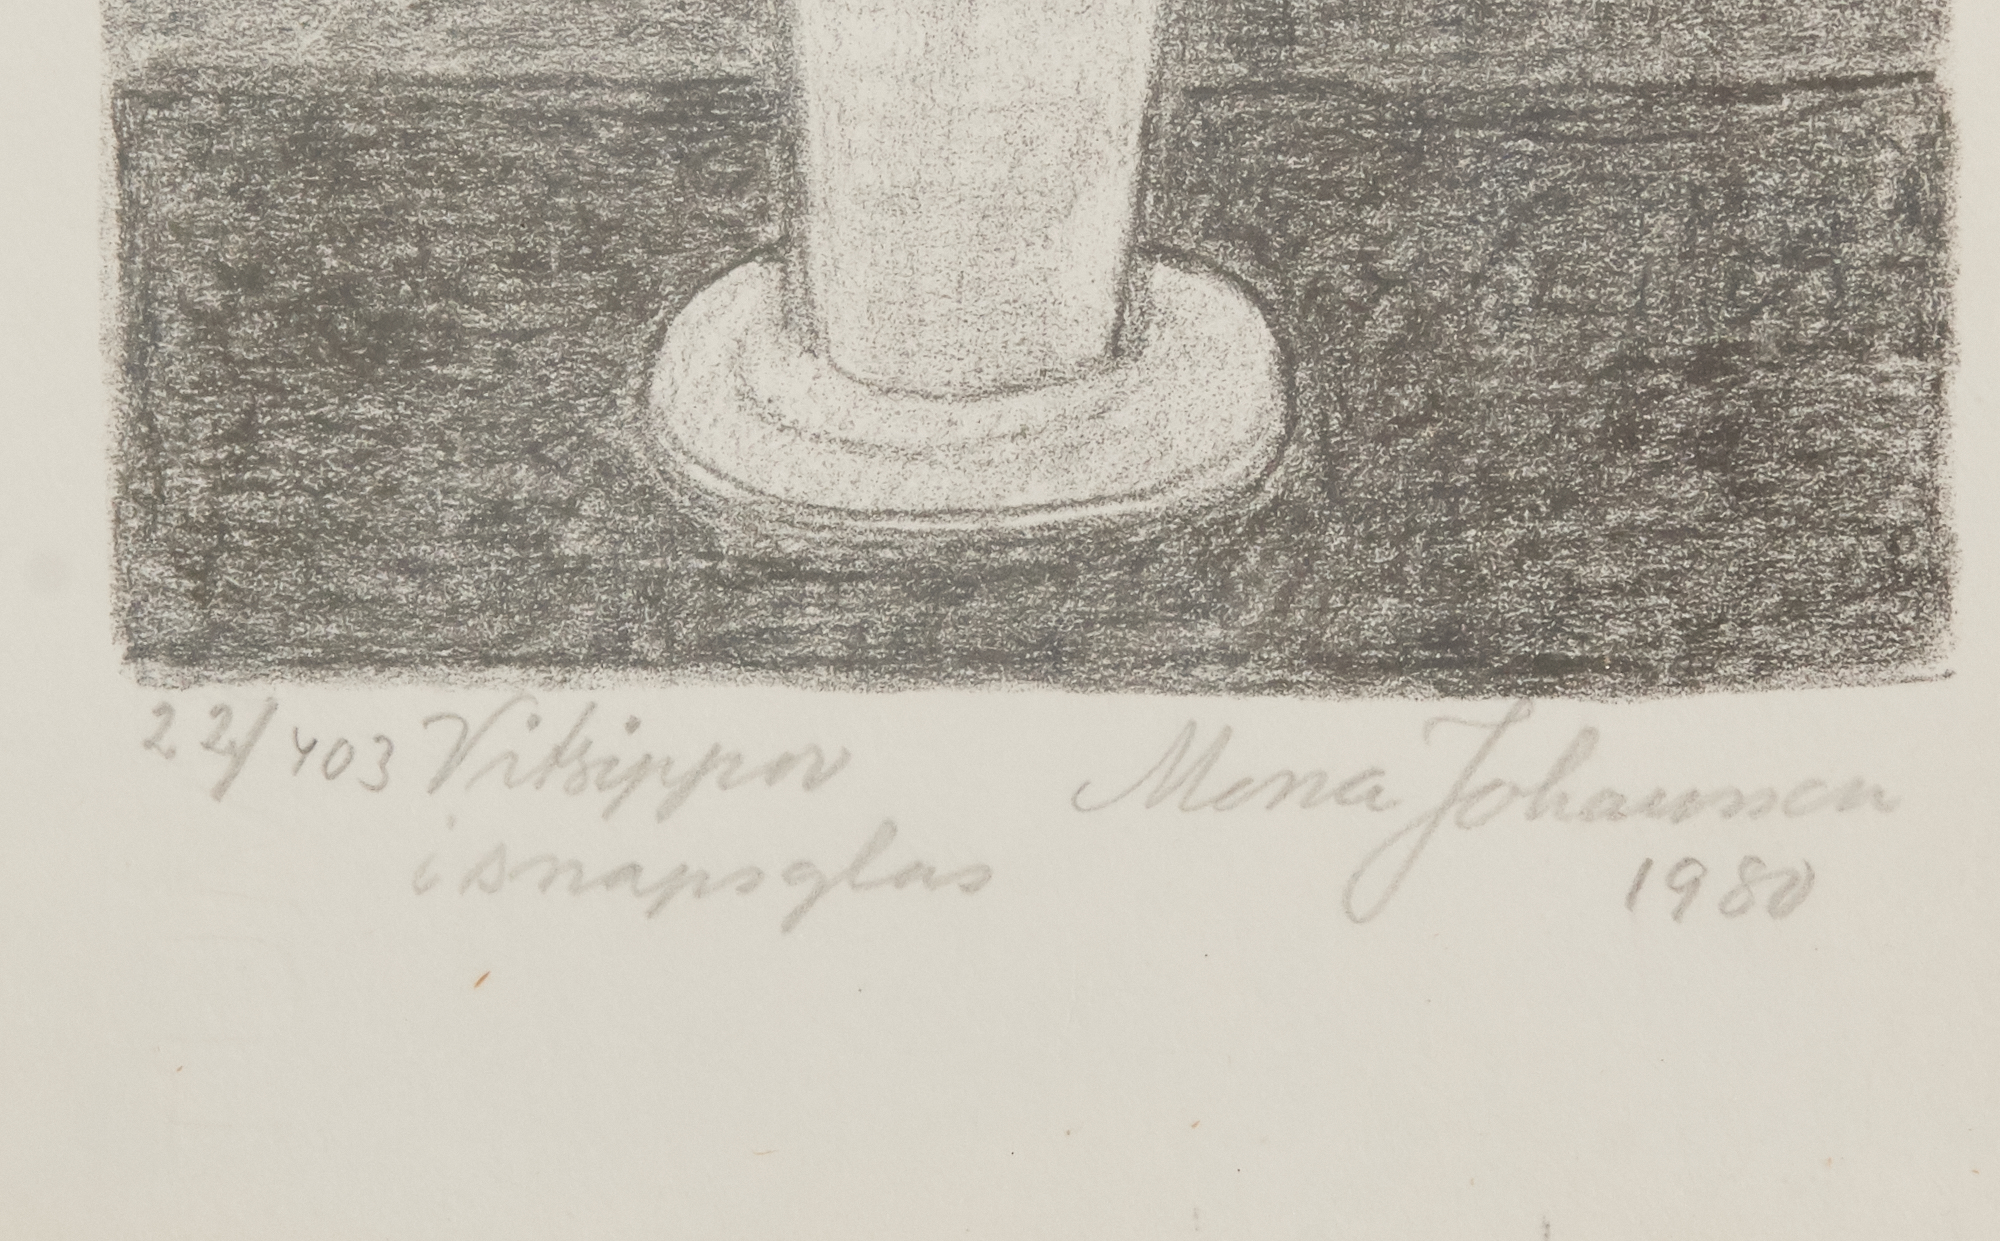 22/403 Vitsippor
i snapsglas
Mona Johansson
1980